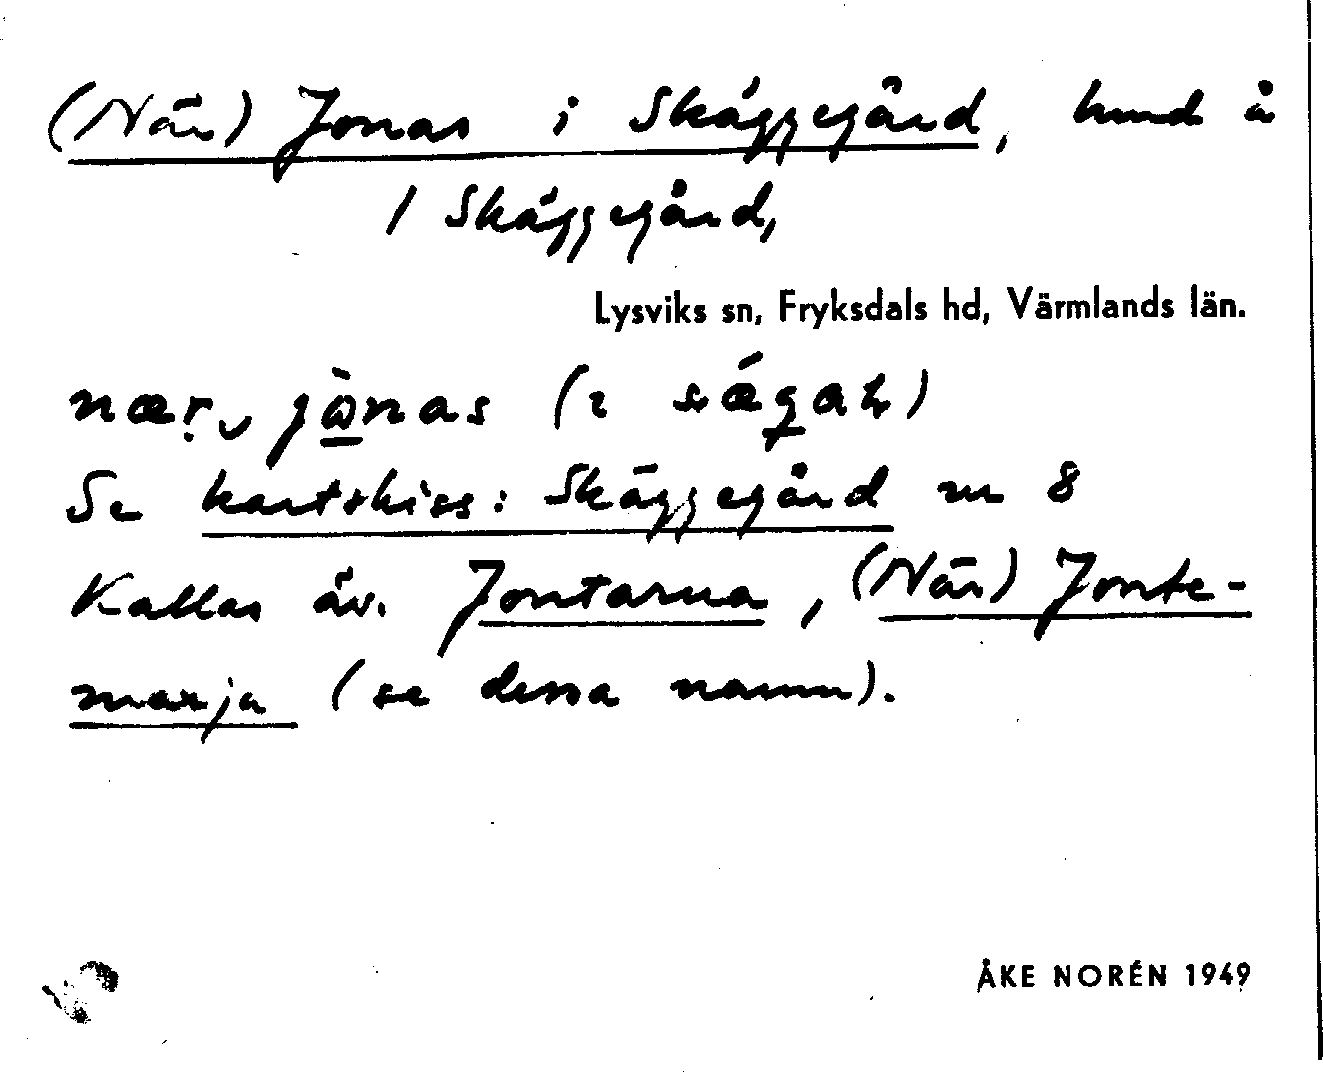 (När) Jonas i Skäggegård, hmd å
1 Skäggegård,
Lysviks sn, Fryksdals hd, Värmlands län.
nær jònas (ı
Se kartskiss: Skäggegård nr 8
Kallas äv. Jontarna, (När) Jonte-
marja (se dessa namn).
ÅKE NORÉN 1949